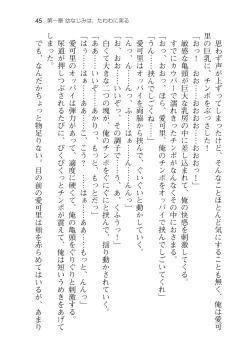 45 第一章 幼なじみは、たわわに実る
思わず声が上ずってしまったけど、そんなことほとんど気にすることも無く、俺は愛可
里の巨乳に、チンポをぶっさした！
「おっ！　おおっ！　おお……おおっ！」
敏感な亀頭が巨大な乳房の中に差し込まれて、俺の快感を刺激する。
すでにカウパーで濡れきったチンポがなんなくその中におさまる。
「おっ、おおっ……愛可里、俺のチンポをオッパイで挟しごいてくれ」
「うん、挟んでしごくね……」
愛可里はオッパイを両脇から挟んで、ぐいぐいと動かしていく。
「お、おお……んんっ……う、あ、くふうっ！」
「はぁ……挟んで……はぁ……んんっ」
白くて大きな二つの塊が、俺のチンポをぐにぐにと挟んで、揺り動かされていく。
「ああっ……いいっ、あああっ！　もっと、もっと！」
「これで……いいっ……はぁ……ああ……もっと、んんっ」
尿道が押しつぶされるたびに、ぐくぐくっとチンポが震えていく。
愛可里のオッパイは弾力があって、適度に硬くて、俺の亀頭をぐりぐりと刺激する。
ああ……もっと、もっと強く……と、俺は短いうめきをあげて
しまった。
でも、なんだかちょっと物足りない。目の前の愛可里は頬を赤らめてはいるが、あまり